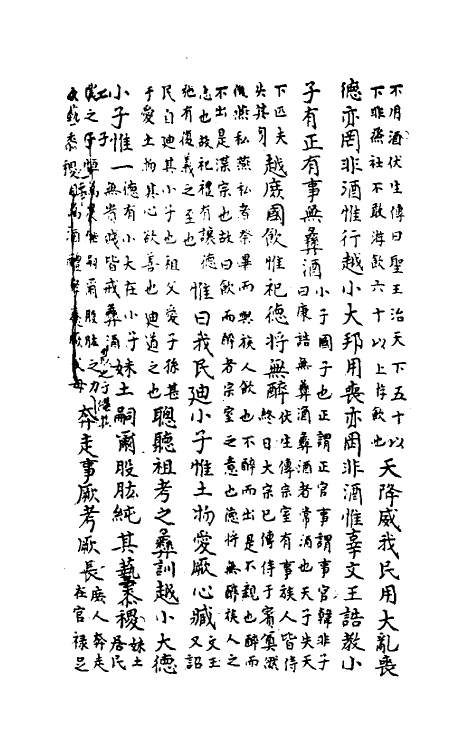 不用酒伏生傳曰聖王治天下五十以
下非烝社不敢游飲六十以上游飲也
天降威我民用大亂喪
德亦罔非酒惟行越小大邦用喪亦罔非酒惟辜文王誥教小
子有正有事無彝酒
小子國子也正謂正官事謂事官韓非子
曰康誥無彝酒彝酒者常酒也天子失天
下匹夫
失其身
越庶國飲惟祀德將無醉
伏生傳宗室有事族人皆侍
終日大宗已傳侍于賓奠然
後燕私燕私者祭畢而與族人飲也不醉而出是不親也醉而
不出是渫宗也故曰飲而醉者宗室之意也德將無醉族人之
志也故祀禮有讓德
施有復義之至也
惟曰我民迪小子惟土物愛厥心臧
文王
又詔
民自迪其小子也祖父愛子孫甚
于愛土物其心欲善也迪道之也
聰聽祖考之彝訓越小大德
小子惟一
德有小大在小子
無嘗哉皆戒彝酒
妹土嗣爾股肱純其藝黍稷
妹土
居民
奔走事厥考厥長
庶人奔走
在官祿足